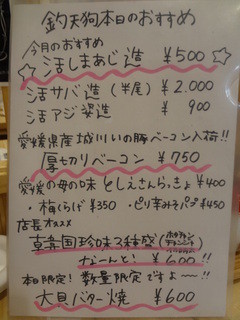 釣天狗本日のおすすめ
今月のおすすめ
☆活しまあじ造 ¥500☆
活サバ造(半尾) ¥2.000
活アジ姿造 ¥900
愛媛県産城川いの豚ベーコン入荷!!
厚切りベーコン ¥750
愛媛の母の味 としえさんらっきょ ¥400
・梅くらげ ¥350 ・ピリ辛みそパプ ¥450
店長オススメ
韓国珍味3種盛(ホタテチャン
チャンジャ
なーんと! ¥600!!
本日限定! 数量限定ですよ〜!!
大貝バター焼 ¥600